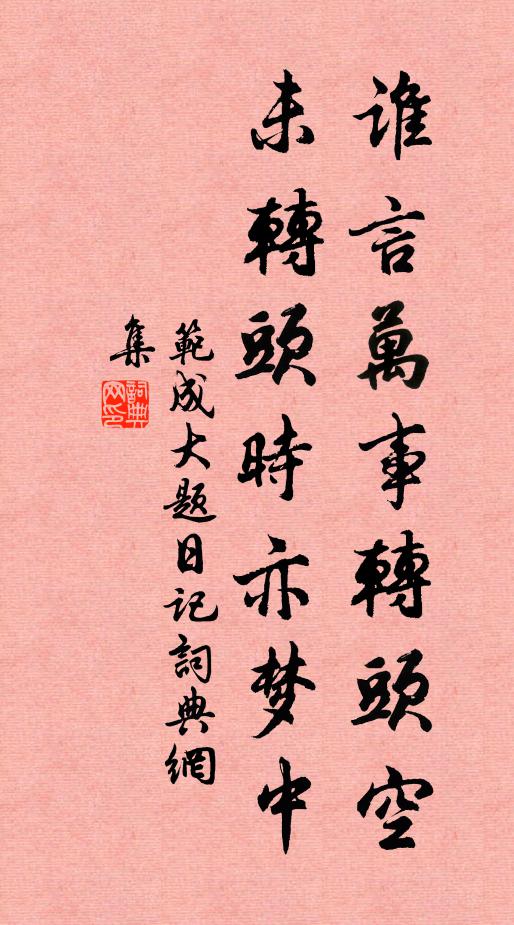 誰言萬事轉頭空
未轉頭時亦梦中
範成大題日記詞典網
集
詞典网印